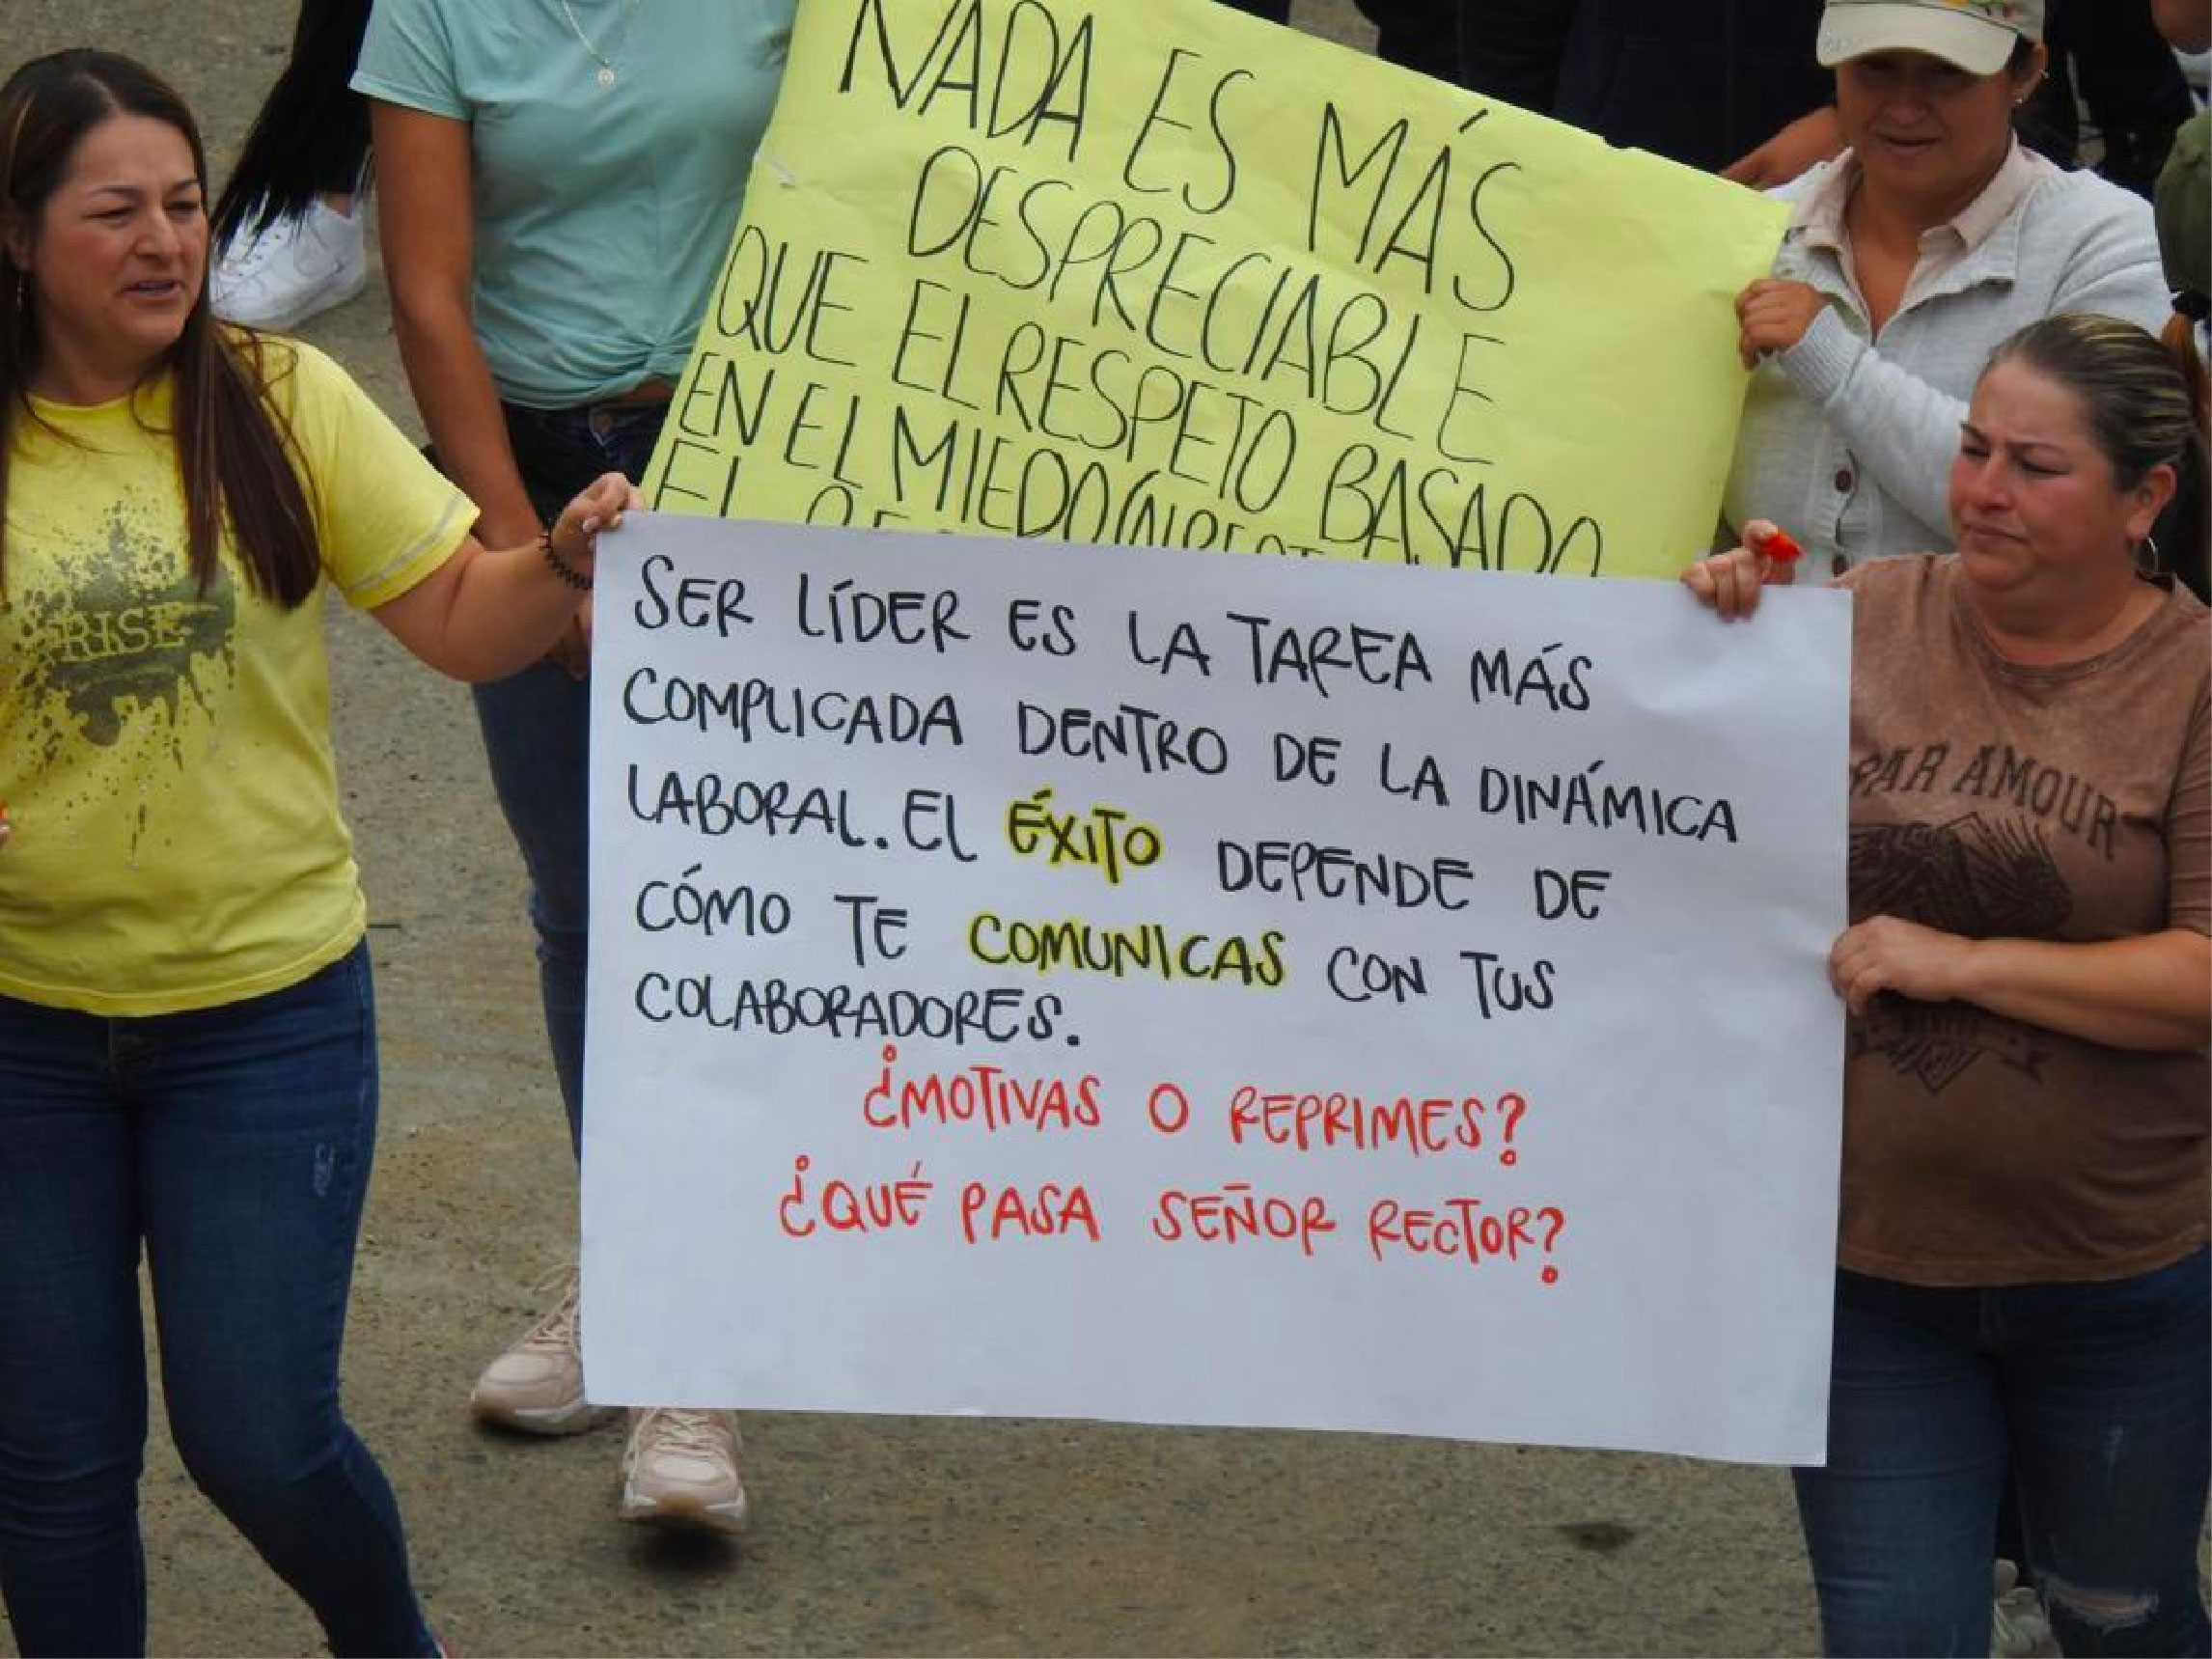 NADA ES MÁS
DESPRECIABLE
QUE EL RESPETO BASADO
EN EL MIEDO
EL
SER LÍDER ES LA TAREA MÁS
COMPLICADA DENTRO DE LA DINÁMICA
LABORAL. EL ÉXITO DEPENDE DE
CÓMO TE COMUNICAS CON TUS
COLABORADORES.
¿MOTIVAS O REPRIMES?
¿QUÉ PASA SEÑOR RECTOR?
RISE
PAR AMOUR